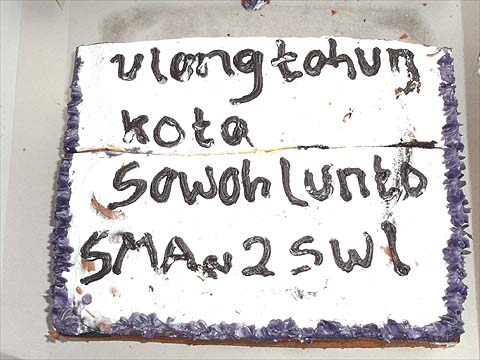 ulang tahun
kota
Sawah lunto
SMAN 2 SWl